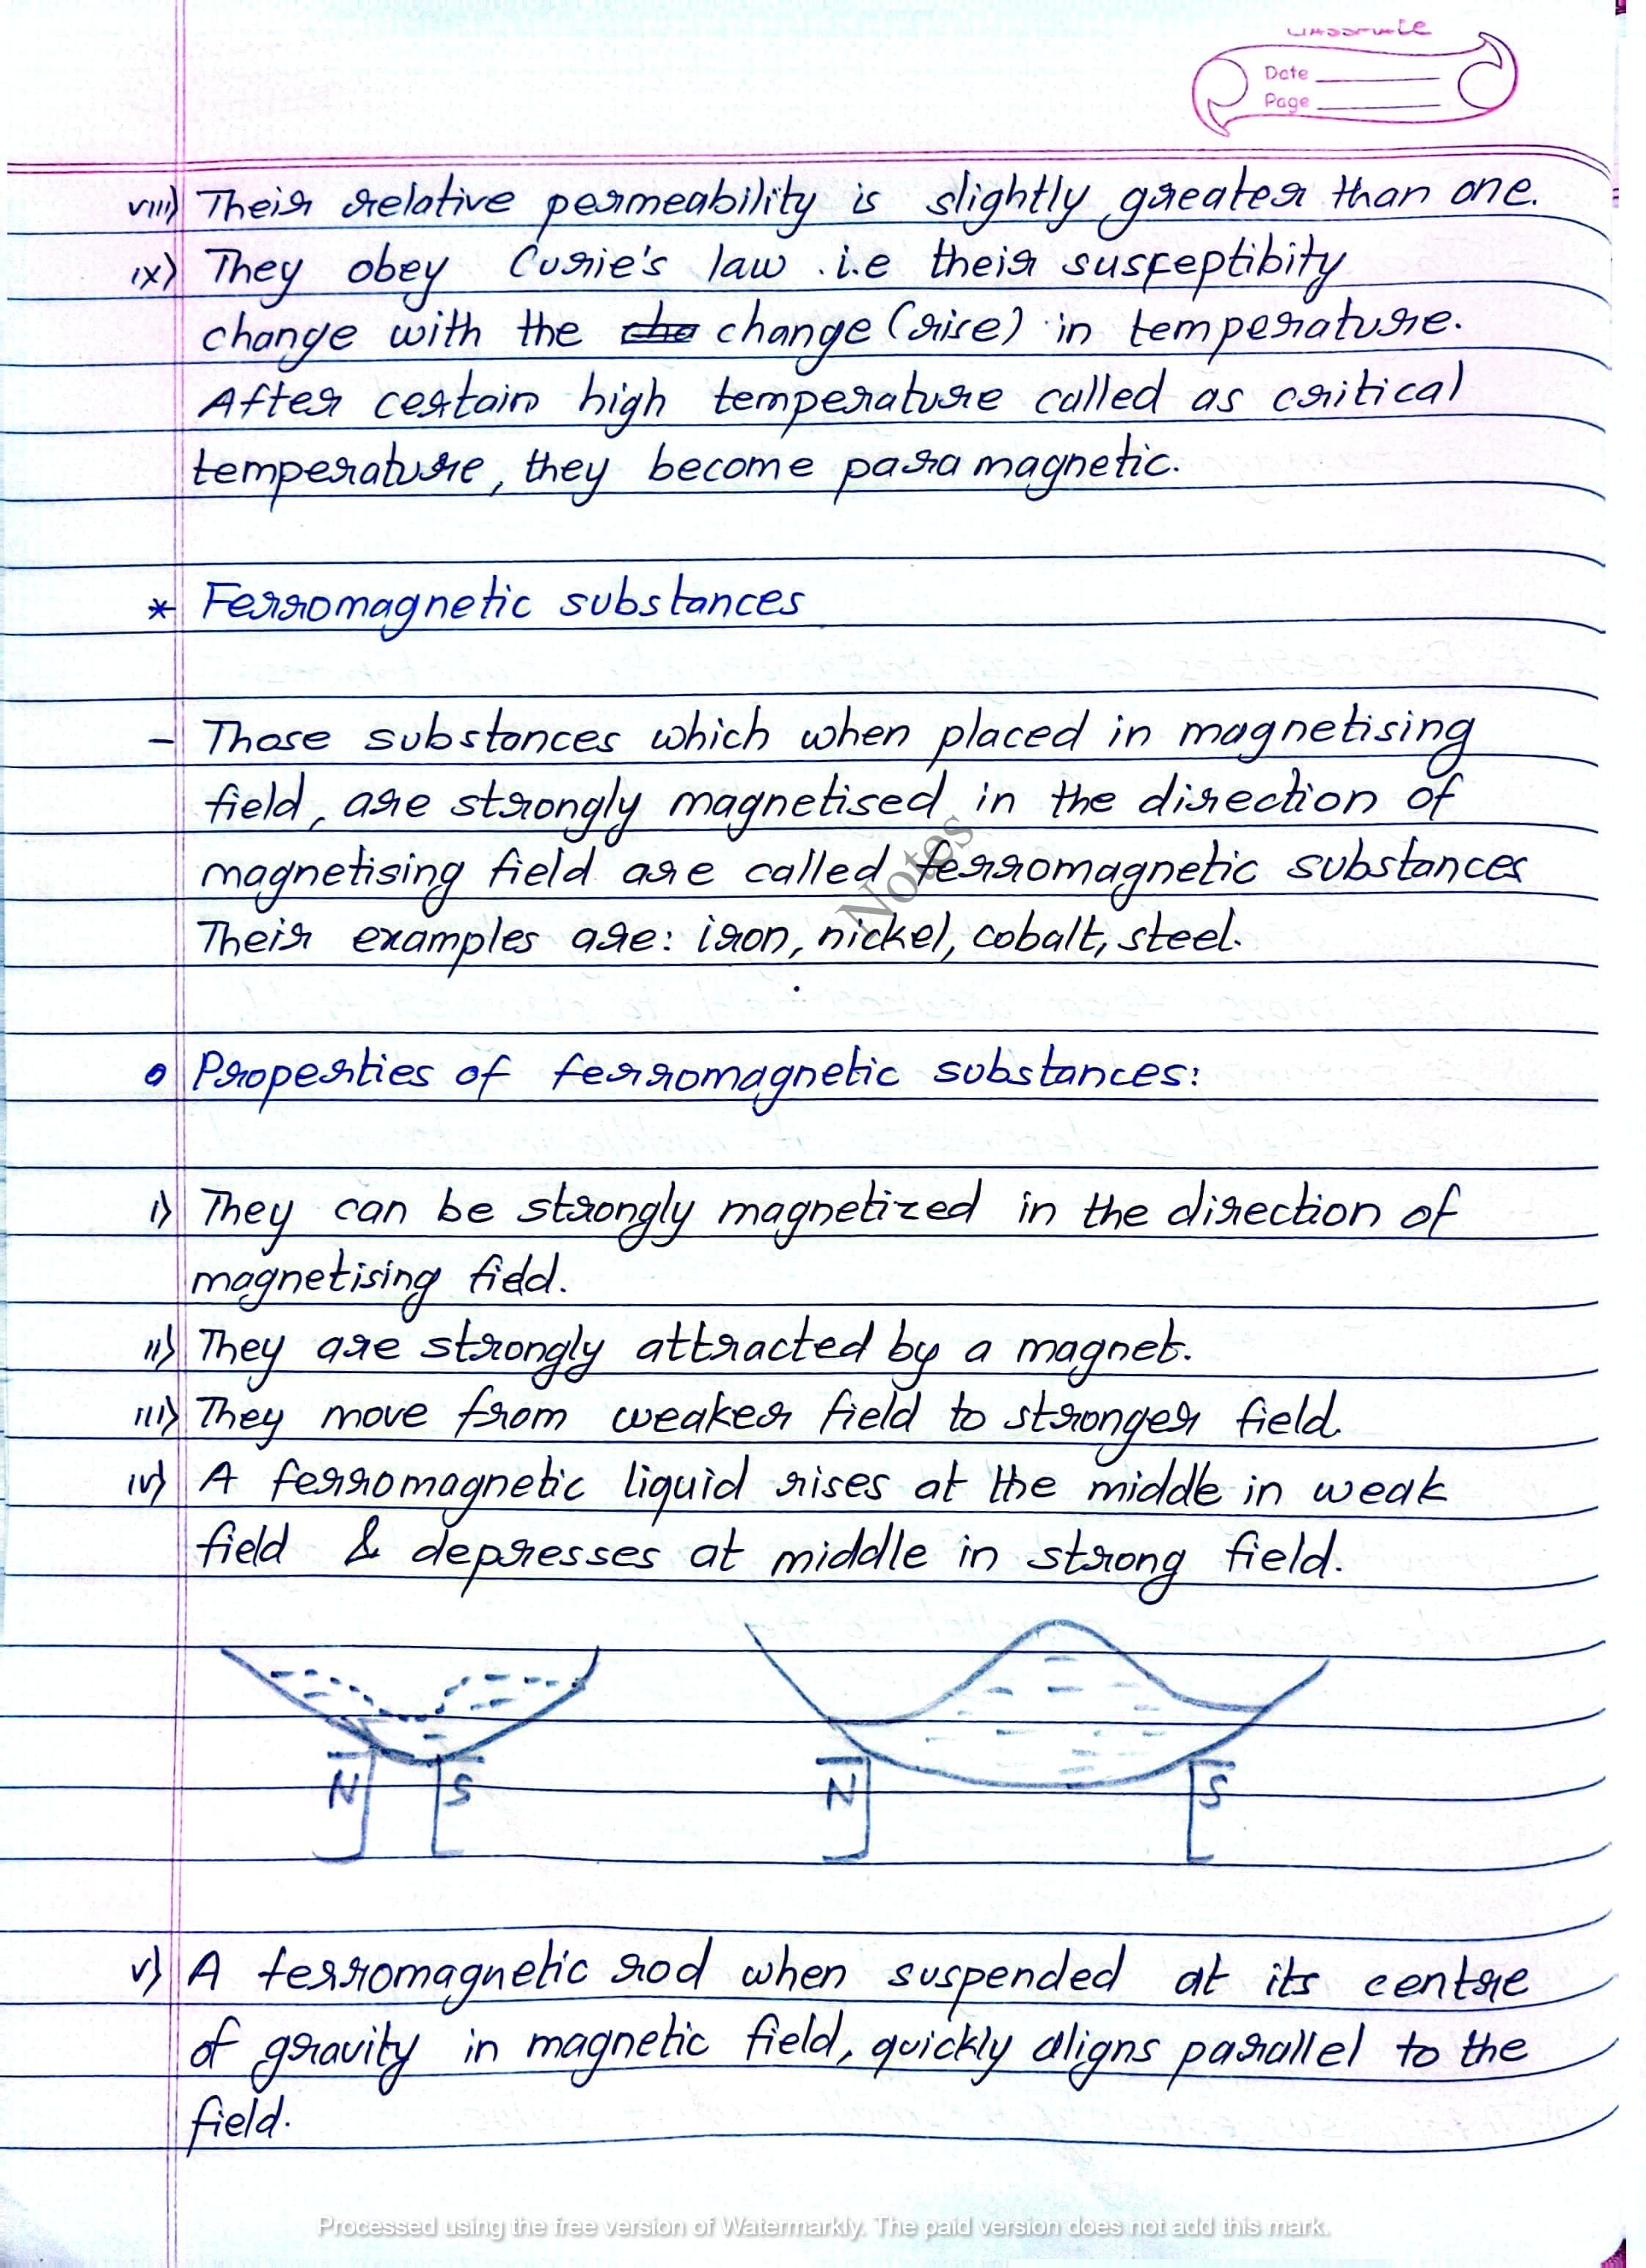 classmate
Date
Page
viii) Their relative permeability is slightly greater than one.
ix) They obey Curie's law .i.e their susceptibity
change with the cha change (rise) in temperature.
After certain high temperature called as critical
temperature, they become para magnetic.
* Ferromagnetic substances
- Those substances which when placed in magnetising
field, are strongly magnetised in the direction of
magnetising field are called ferromagnetic substances
Their examples are: iron, nickel, cobalt, steel.
Notes
Properties of ferromagnetic substances:
i) They can be strongly magnetized in the direction of
magnetising field.
ii) They are strongly attracted by a magnet.
iii) They move from weaker field to stronger field.
iv) A ferromagnetic liquid rises at the middle in weak
field & depresses at middle in strong field.
N S N S
v) A ferromagnetic rod when suspended at its centre
of gravity in magnetic field, quickly aligns parallel to the
field.
Processed using the free version of Watermarkly. The paid version does not add this mark.